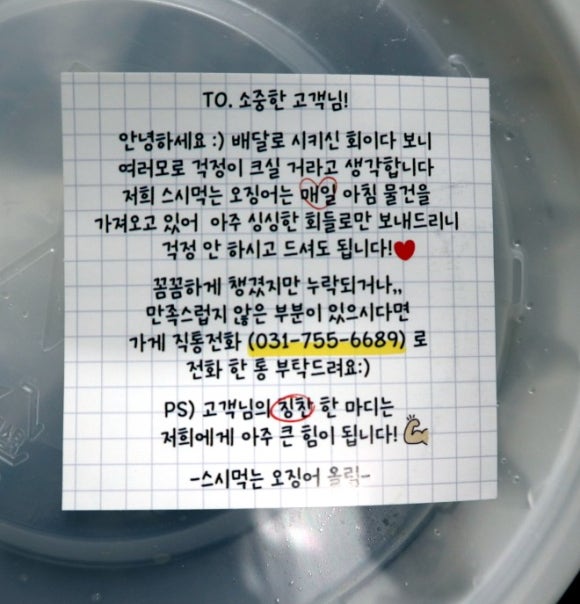 TO. 소중한 고객님!
안녕하세요 :) 배달로 시키신 회이다 보니
여러모로 걱정이 크실 거라고 생각합니다
저희 스시먹는 오징어는 매일 아침 물건을
가져오고 있어 아주 싱싱한 회들로만 보내드리니
걱정 안 하시고 드셔도 됩니다!♥
꼼꼼하게 챙겼지만 누락되거나,,
만족스럽지 않은 부분이 있으시다면
가게 직통전화 (031-755-6689) 로
전화 한 통 부탁드려요:)
PS) 고객님의 칭찬 한 마디는
저희에게 아주 큰 힘이 됩니다! 💪
-스시먹는 오징어 올림-